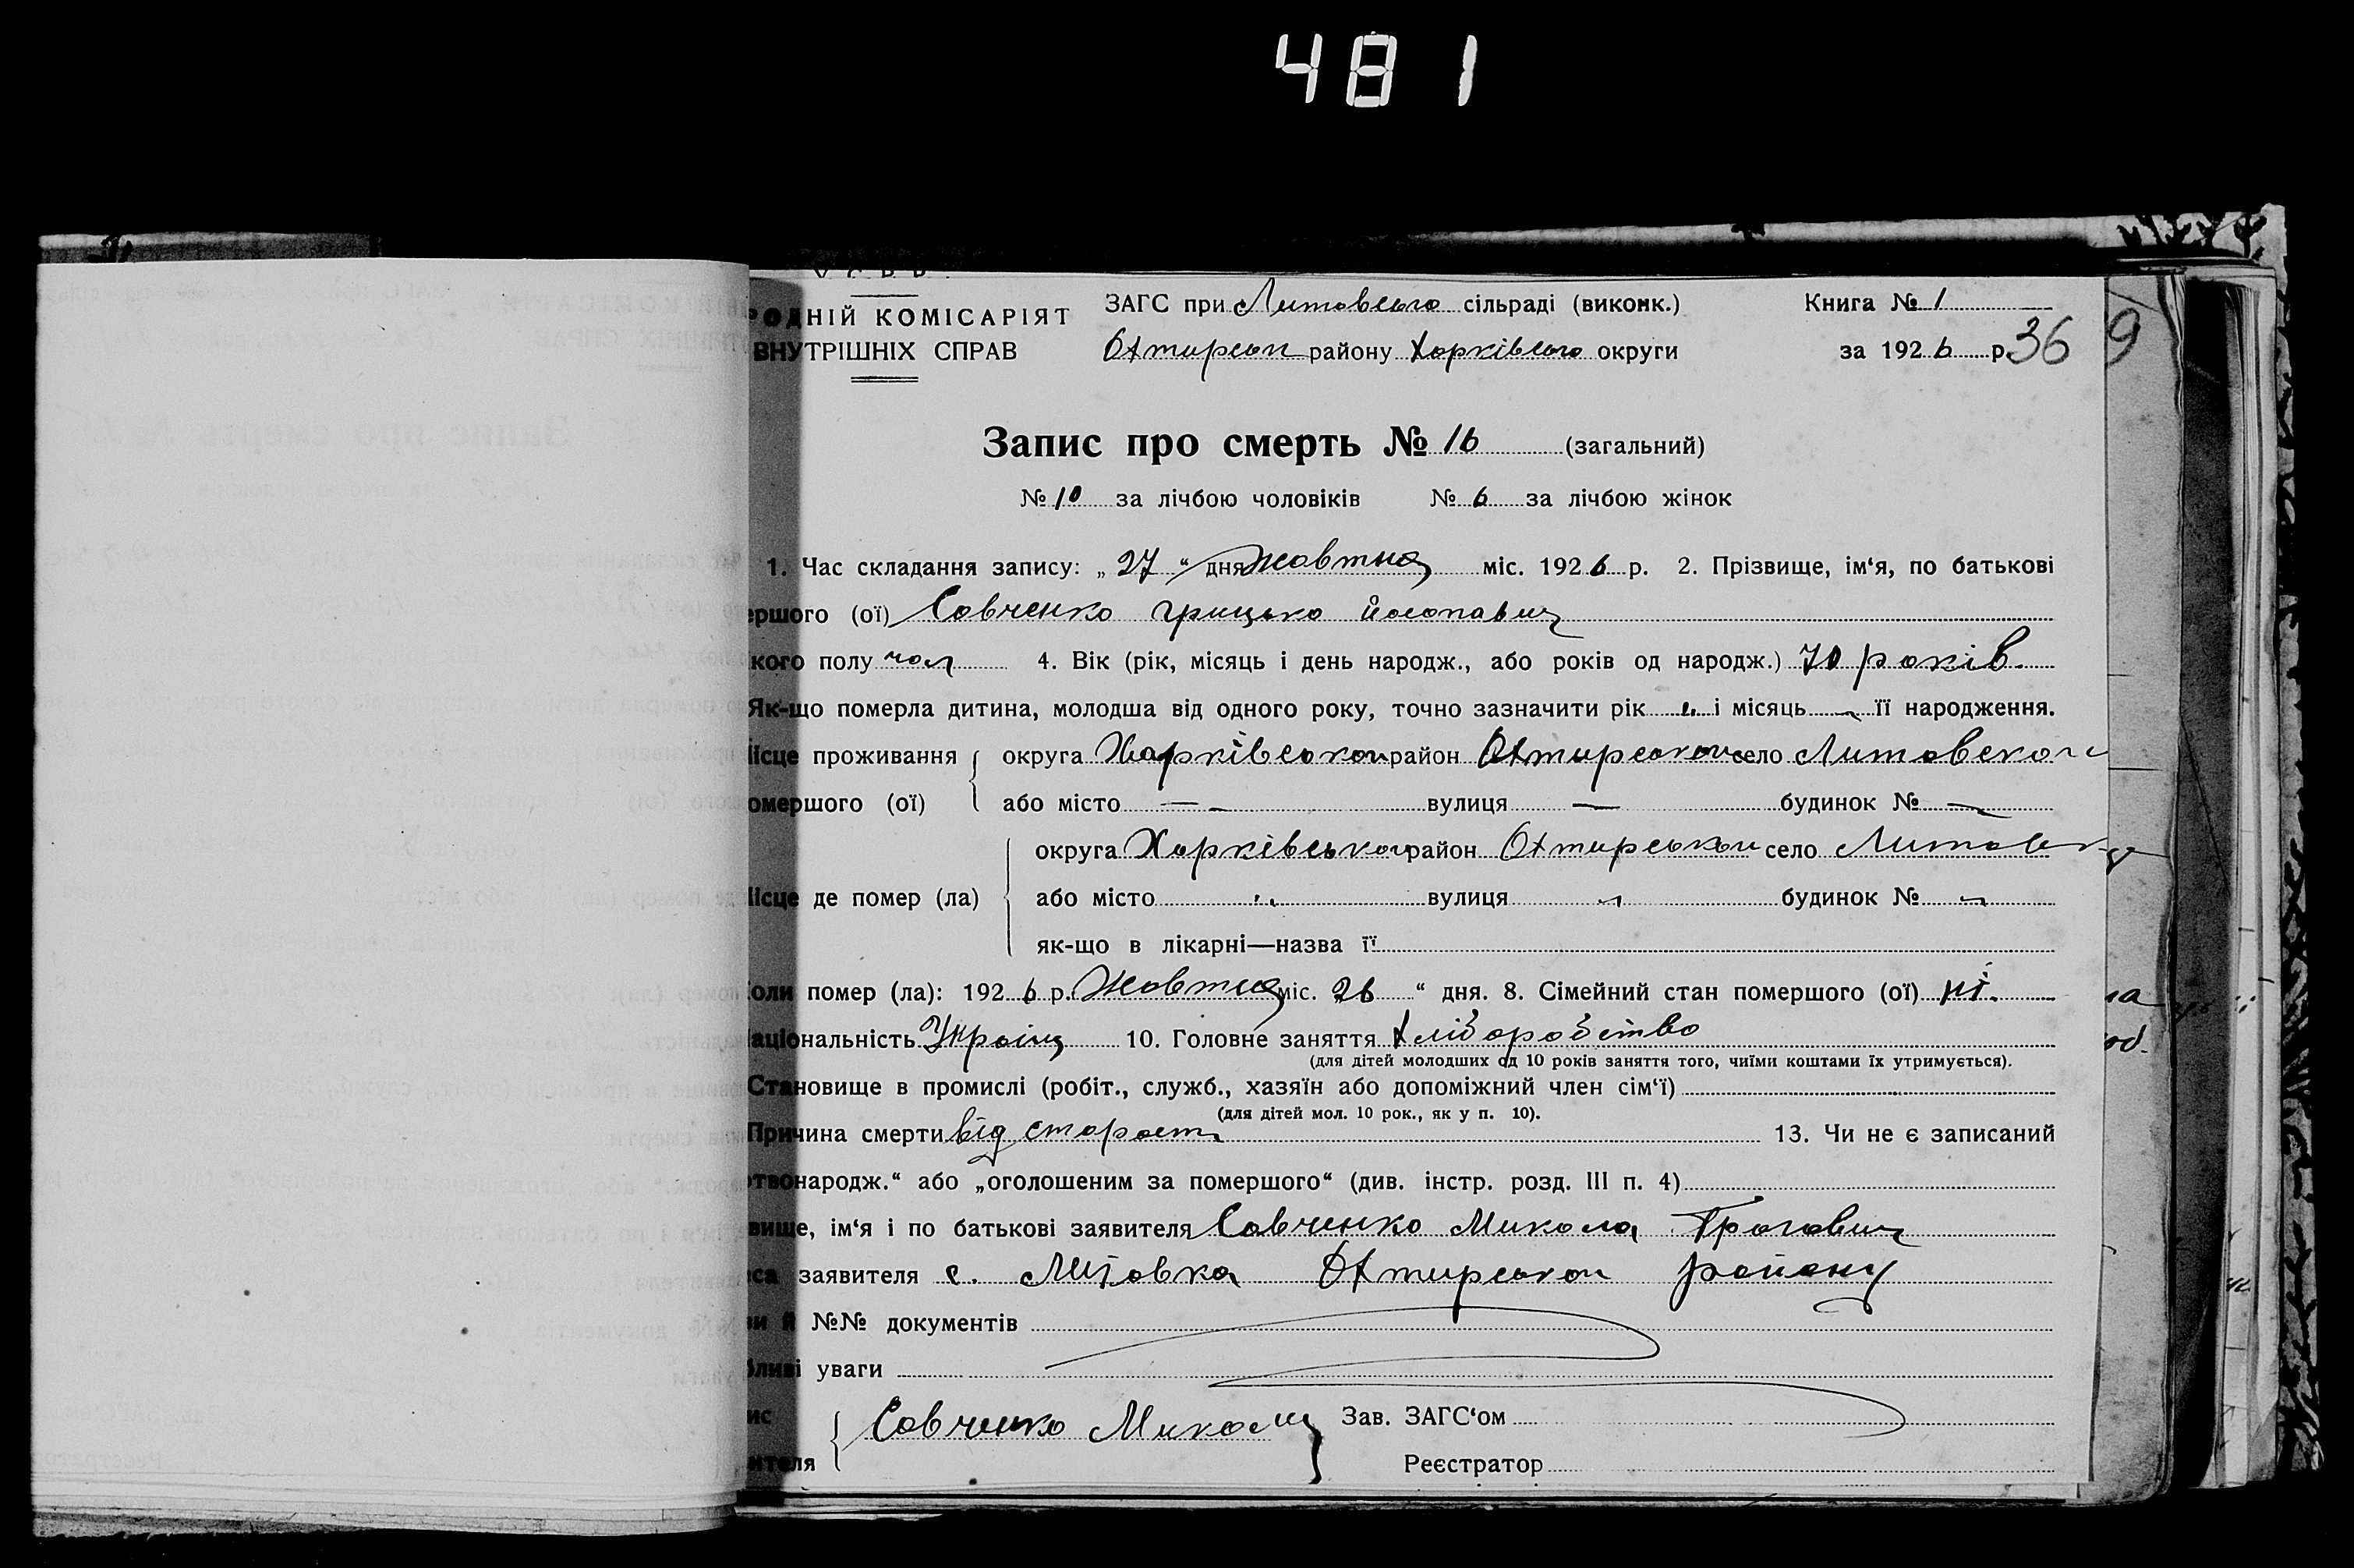 481
У С Р Р .
РОДНІЙ КОМІСАРІЯТ
ВНУТРІШНІХ СПРАВ
ЗАГС при Литовсього сільраді (виконк.)
Охтирськ району Харківсього округи
Книга № 1
за 1926 р. 36 9
Запис про смерть № 16 (загальний)
№ 10 за лічбою чоловіків № 6 за лічбою жінок
1. Час складання запису: „27“ дня жовтня міс. 1926 р. 2. Прізвище, ім‘я, по батькові
ершого (ої) Савченко грицько йосопавич
кого полу чол 4. Вік (рік, місяць і день народж., або років од народж.) 70 років
Як-що померла дитина, молодша від одного року, точно зазначити рік „ і місяць — її народження.
ісце проживання округа Харківськой район Охтирськой село Литовской
омершого (ої) або місто — вулиця — будинок № —
округа Харківськой район Охтирськой село
ісце де помер (ла) або місто „ вулиця „ будинок № „
як-що в лікарні—назва її
оли помер (ла): 1926 р. Жовтня міс. 26 “ дня. 8. Сімейний стан помершого (ої) ні.
аціональність Україн 10. Головне заняття Хліборобство
(для дітей молодших од 10 років заняття того, чиїми коштами їх утримується).
Становище в промислі (робіт., служб., хазяїн або допоміжний член сім‘ї)
(для дітей мол. 10 рок., як у п. 10).
Причина смерти від старости 13. Чи не є записаний
твонародж.“ або „оголошеним за помершого“ (див. інстр. розд. III п. 4)
вище, ім‘я і по батькові заявителя Савченко Микола
са заявителя с. Литовка Охтирськой району
ви й №№ документів
бливі уваги
ис Савченко Микола Зав. ЗАГС‘ом
ителя Реєстратор